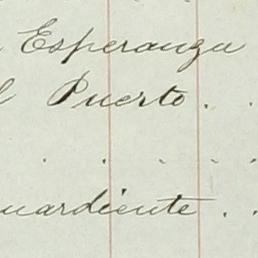 Esperanza
l Puerto . .
. . . . .
uardiente . .